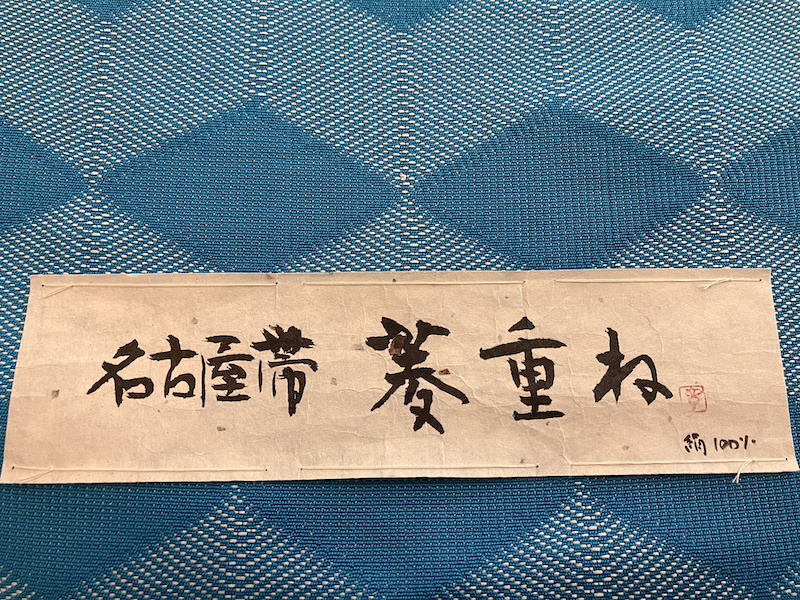 名古屋帯 菱重ね
絹100%